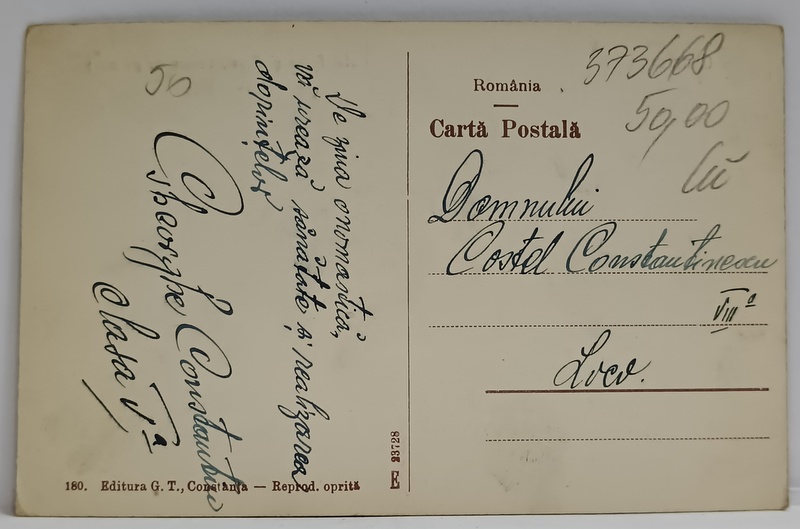 50
De ziua onomastică,
vă urează sănătate și realizarea
dorințelor
Gheorghe Constantin
clasa Vª
180. Editura G. T., Constanța — Reprod. oprită
E 23728
România
Cartă Postală
373668
50,00
Domnului
Costel Constantinescu
VIIIª
Loco.